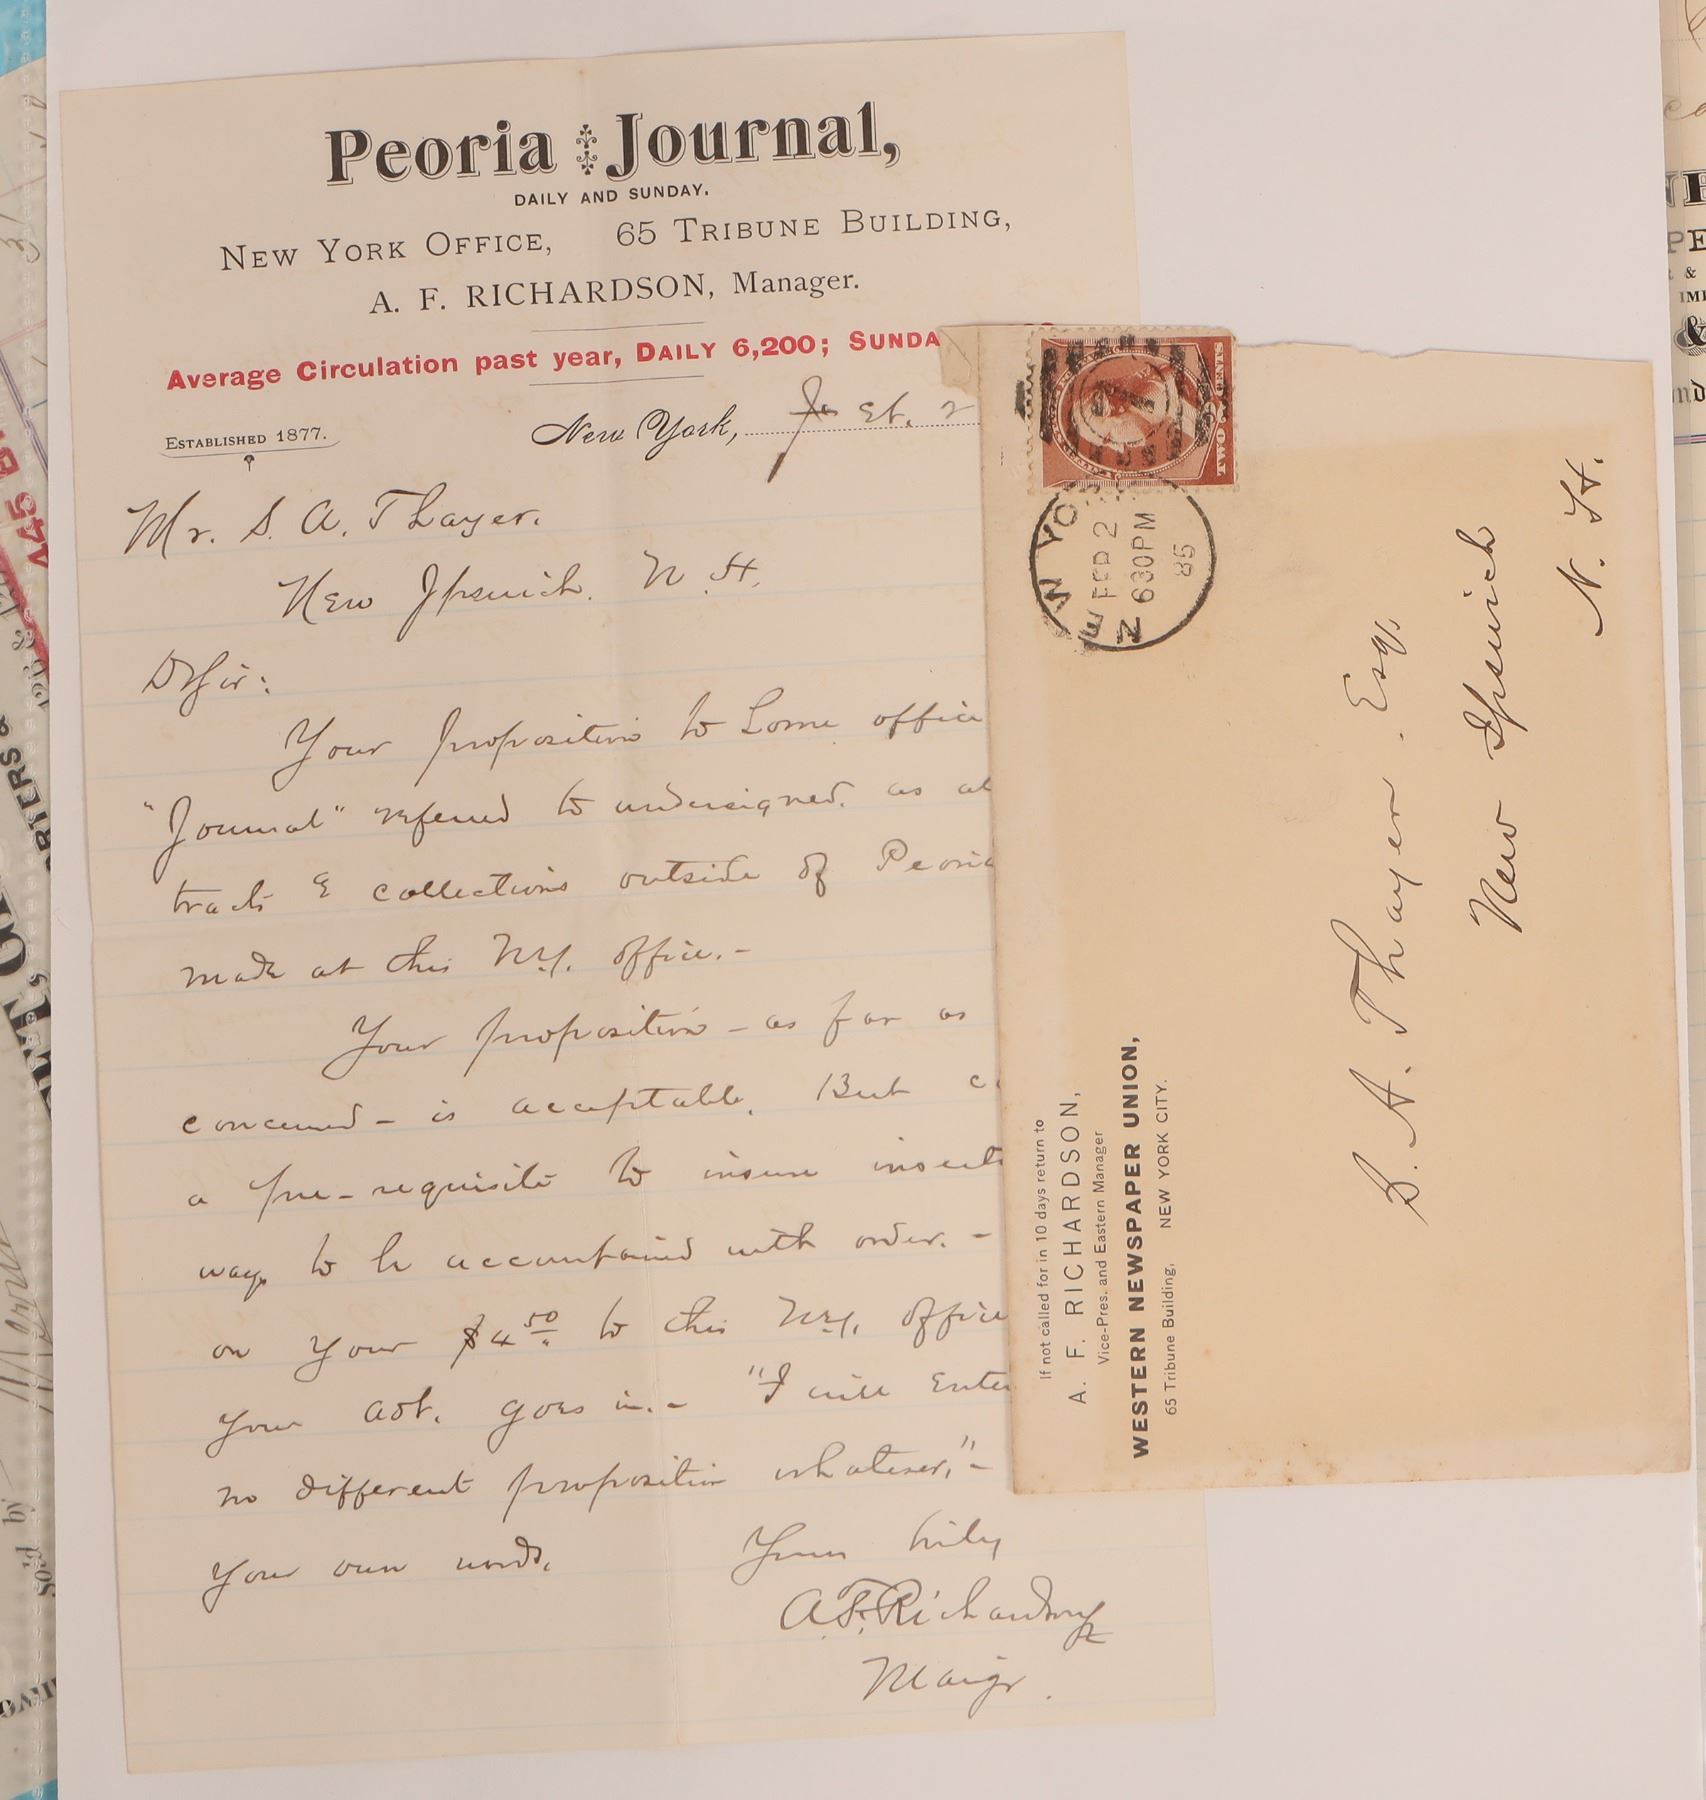 Peoria Journal,
DAILY AND SUNDAY.
NEW YORK OFFICE, 65 TRIBUNE BUILDING,
A. F. RICHARDSON, Manager.
Average Circulation past year, DAILY 6,200; SUNDA
ESTABLISHED 1877.
New York, 2
Mr. S. A. Thayer.
New Ipswich. N. H.
D Sir:
Your proposition to home office
"Journal" referred to undersigned. as al
tracts & collections outside of Peoria
made at this N.Y. office.-
Your proposition - as far as
concerned - is acceptable. But c
a pre-requisite to insure insert
way to be accompanied with order. -
on your $4 50 to this N.Y. office
your adt. goes in. - "I will enter
no different proposition whatever," -
your own words.
Yours truly
A. F. Richardson
Mangr.
TWO CENTS
NEW YO
FEB 2
630PM
85
S. A. Thayer. Esq.
New Ipswich
N. H.
If not called for in 10 days return to
A. F. RICHARDSON,
Vice-Pres. and Eastern Manager
WESTERN NEWSPAPER UNION,
65 Tribune Building, NEW YORK CITY.
Sold by